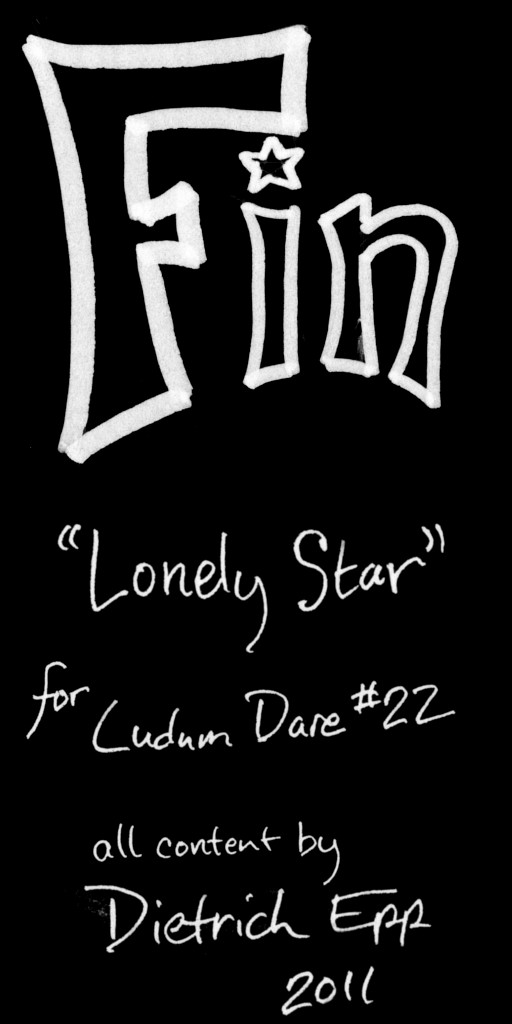 Fin
“Lonely Star”
for Ludum Dare #22
all content by
Dietrich Epp
2011